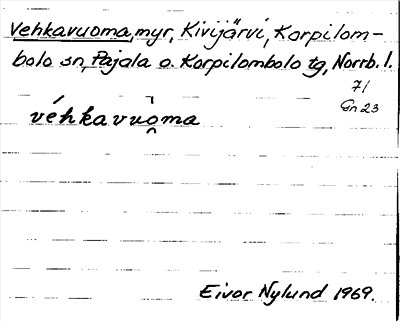 Vehkavuoma, myr, Kivijärvi, Korpilom-
bolo sn, Pajala o. Korpilombolo tg, Norrb. l.
71
Gn 23
véhkavuo̯ma
Eivor Nylund 1969.